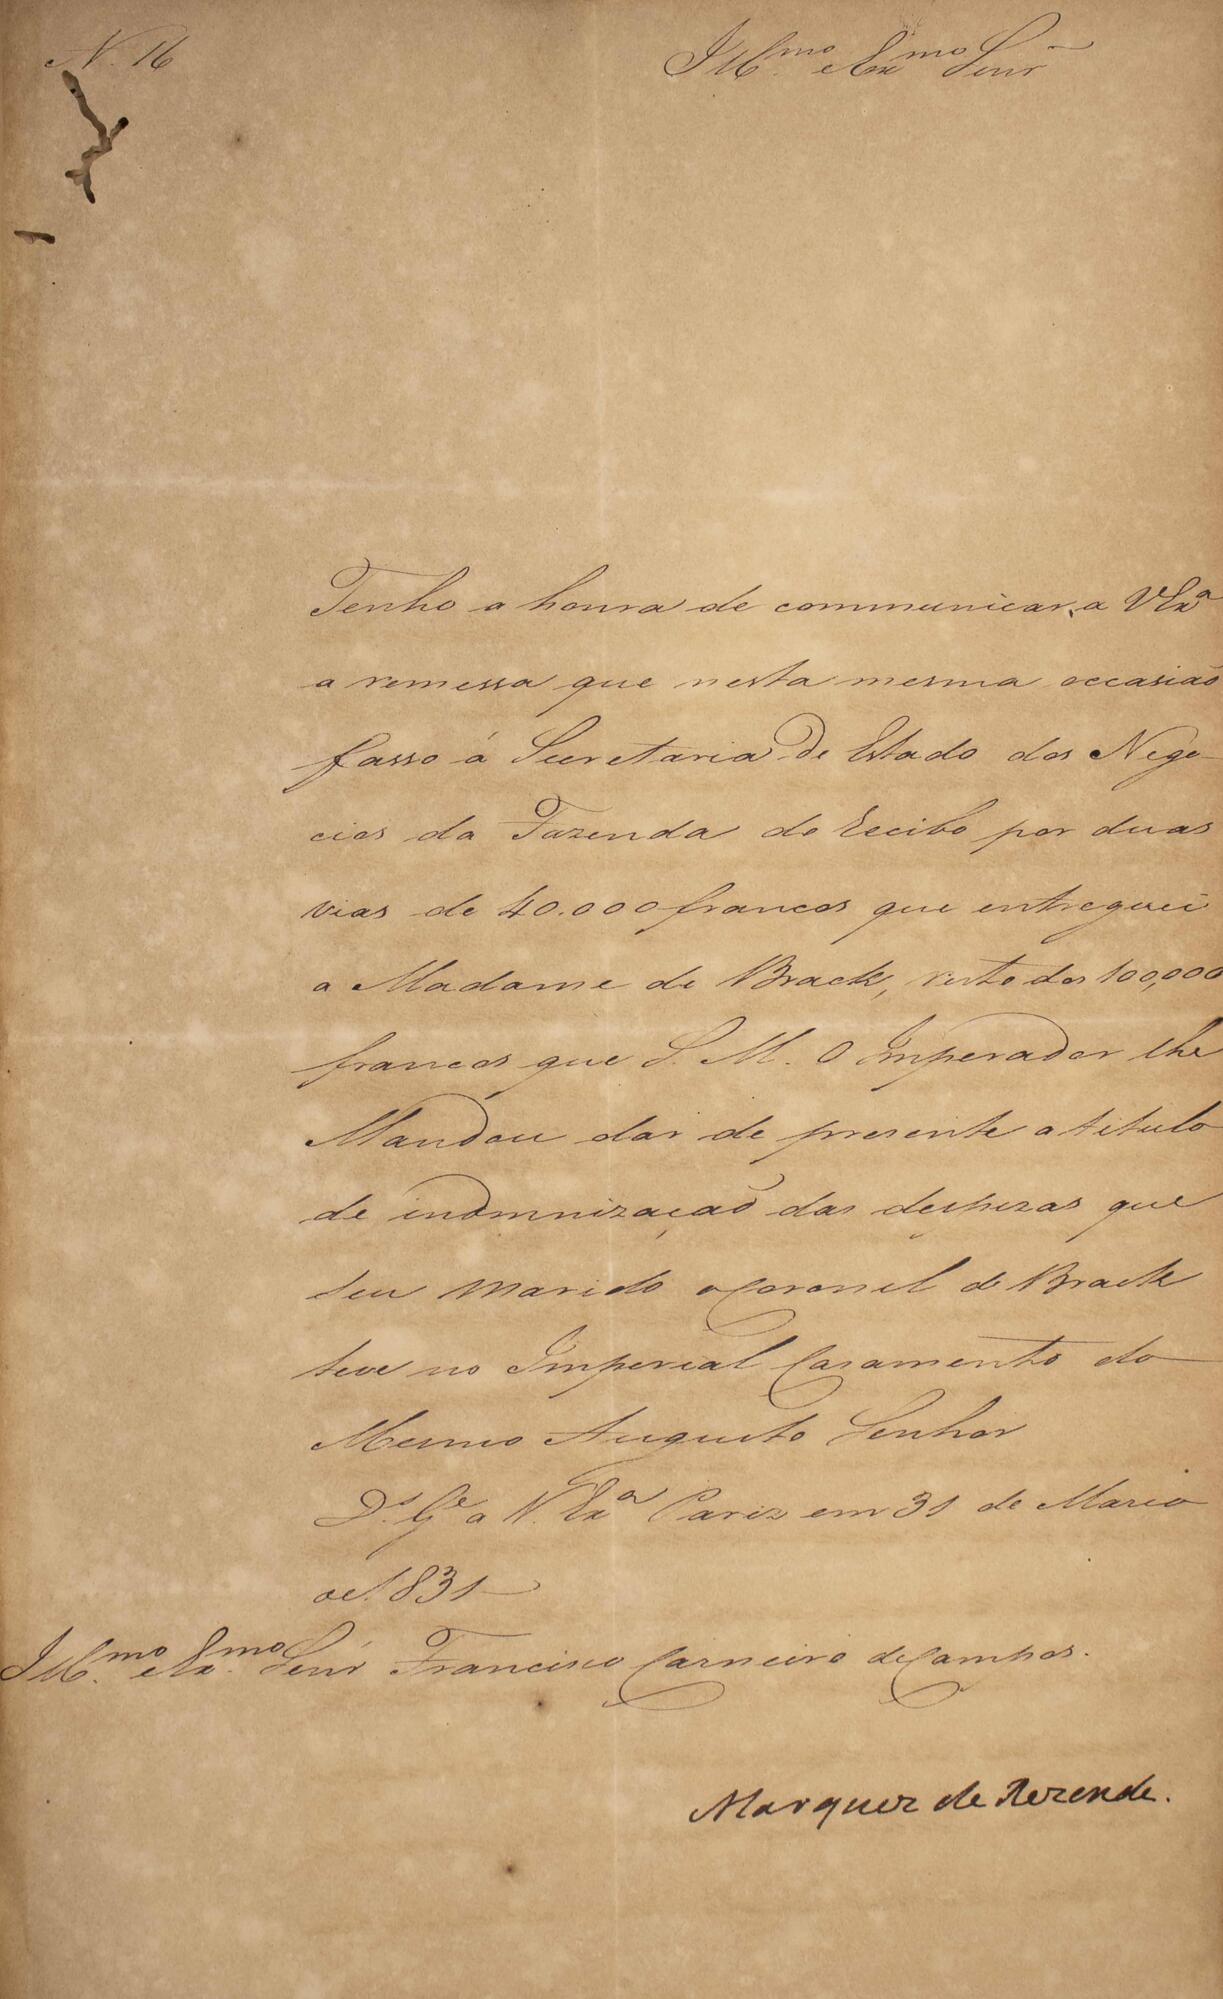 N. 16
Ill.mo e Ex.mo Senr
Tenho a honra de communicar, a V Ex.a
a remessa que nesta mesma occasião
fasso á Secretaria de Estado dos Nego-
cios da Fazenda do recibo por duas
vias de 40.000 francos que entreguei
a Madame de Brack, resto dos 100,000
francos que S. M. O Imperador lhe
Mandou dar de presente a titulo
de indemnização das despezas que
seu marido o Coronel de Brack
teve no Imperial Casamento do
Mesmo Augusto Senhor
D.s G.e a V. Ex.a Pariz em 31 de Março
de 1831
Ill.mo e Ex.mo Senr Francisco Carneiro de Campos.
Marquez de Rezende.